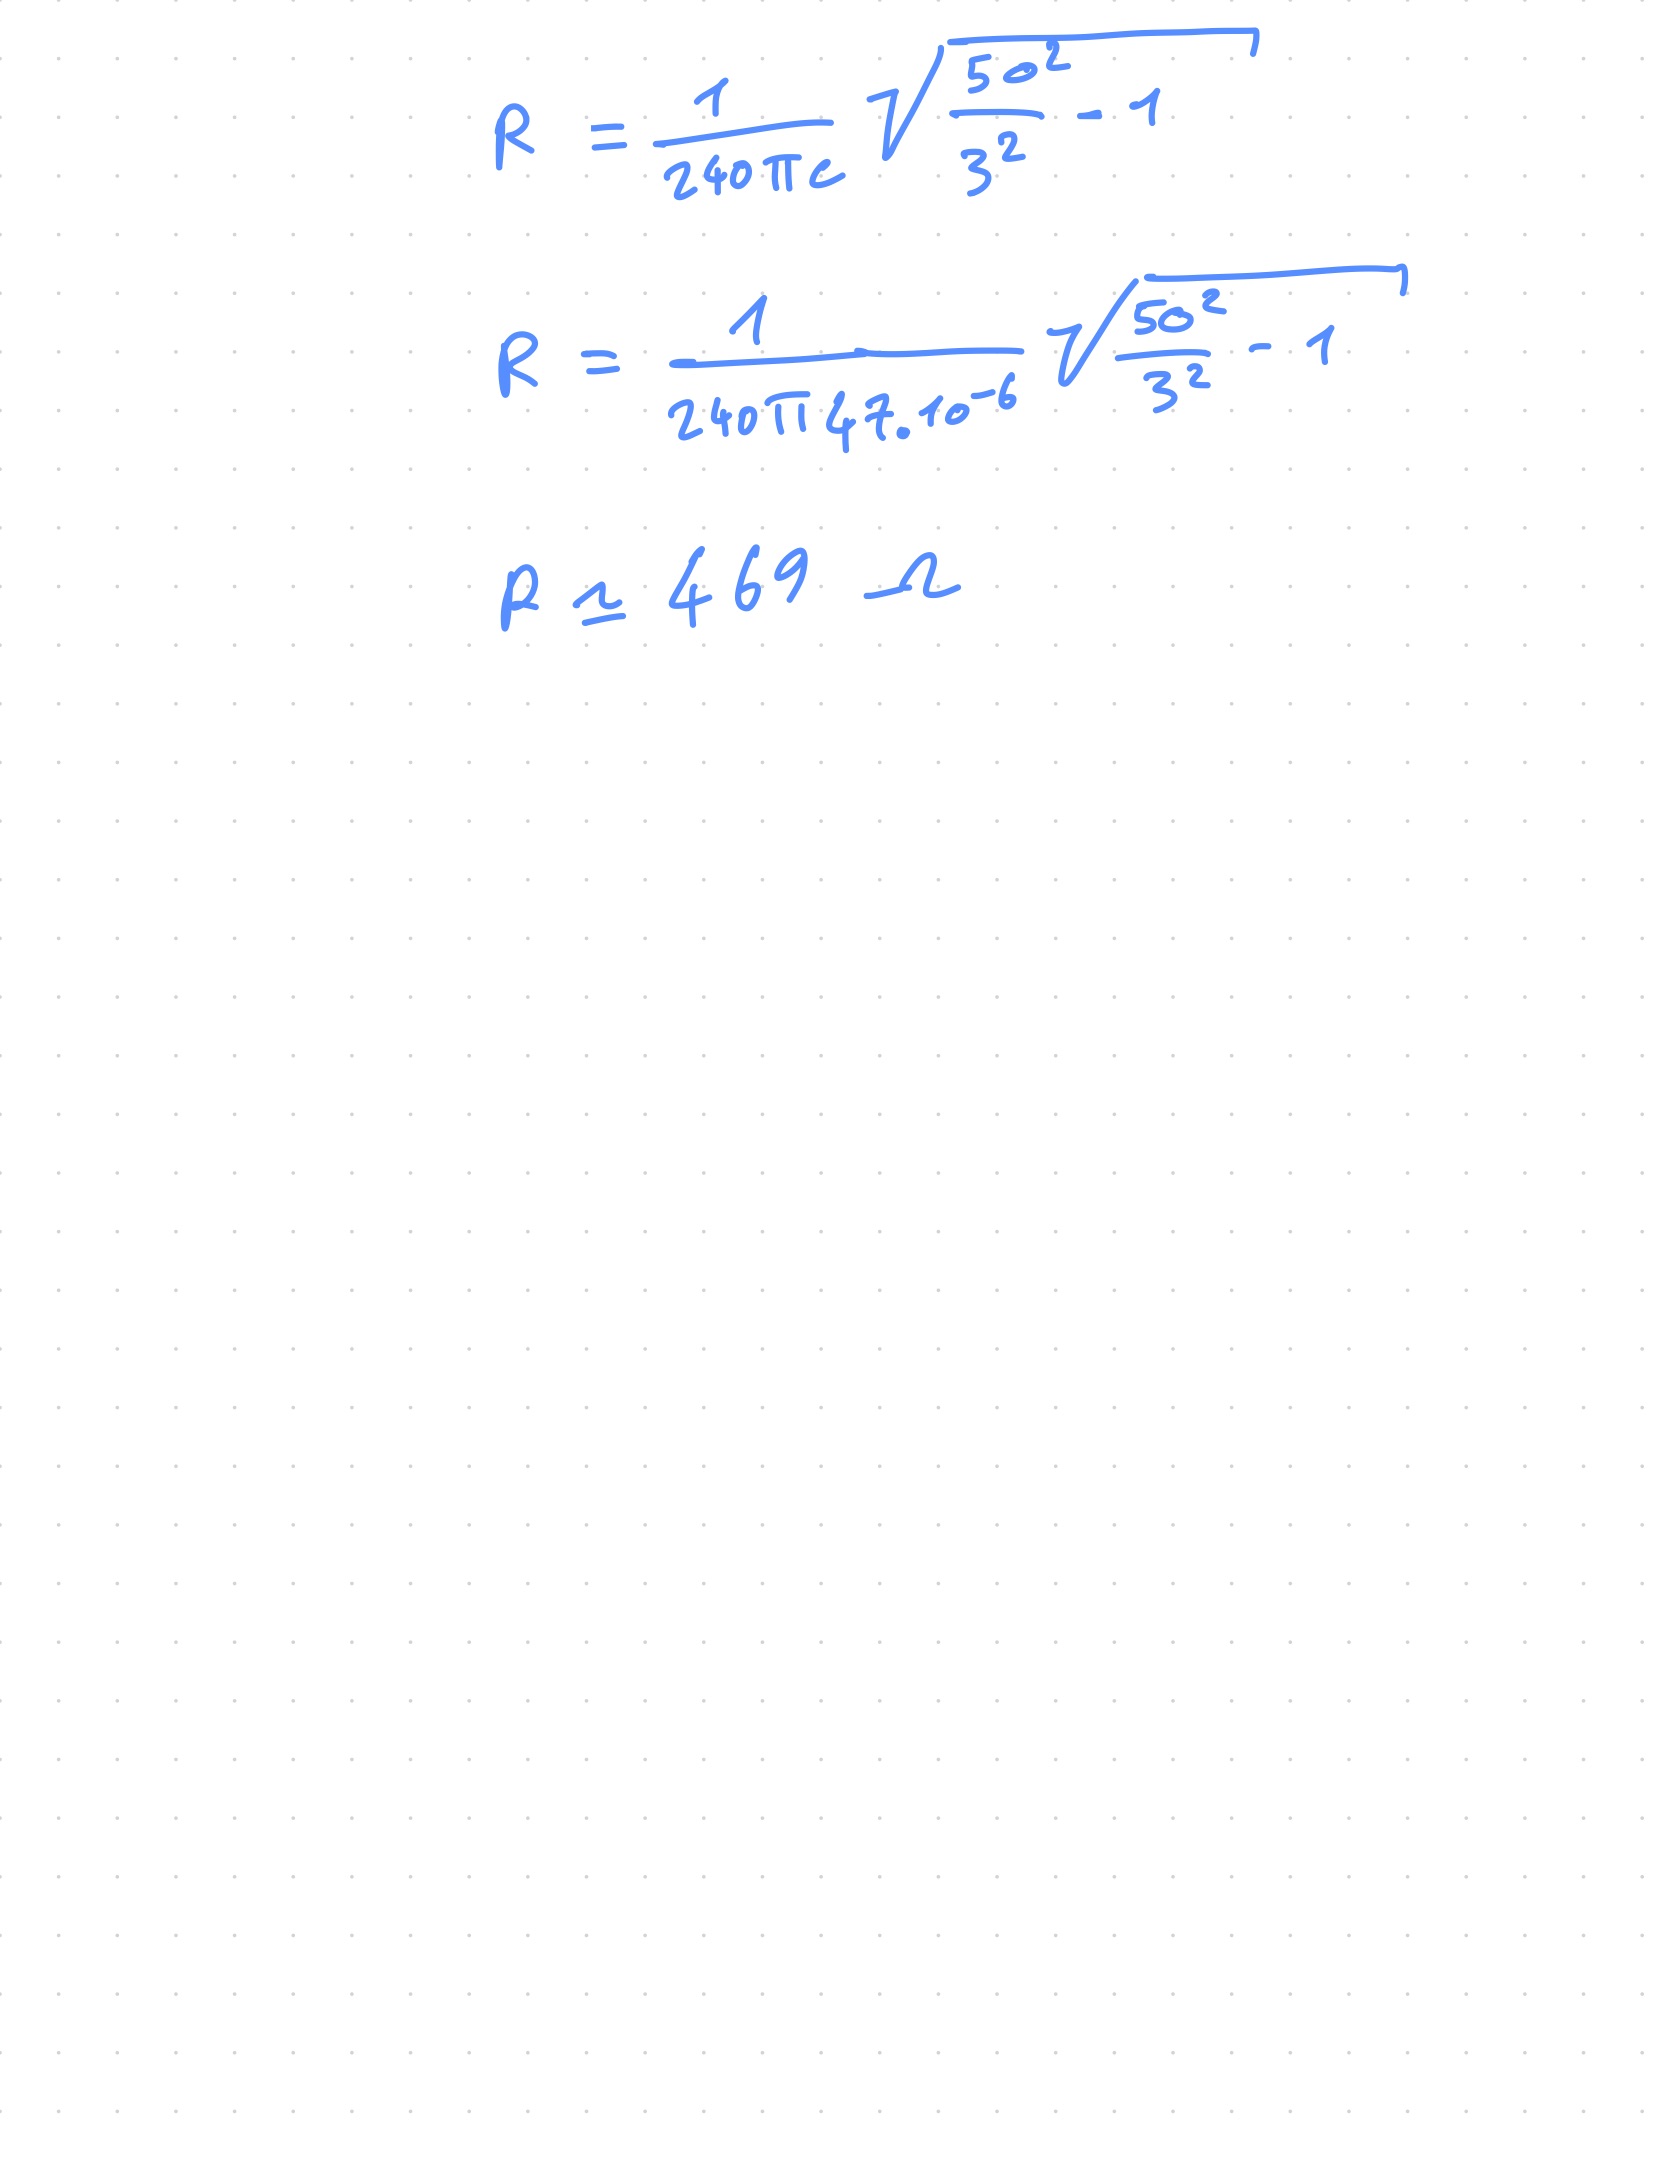 R = 1/(240πc) √(50²/3² - 1)
R = 1/(240π47.10⁻⁶) √(50²/3² - 1)
R ≃ 469 Ω